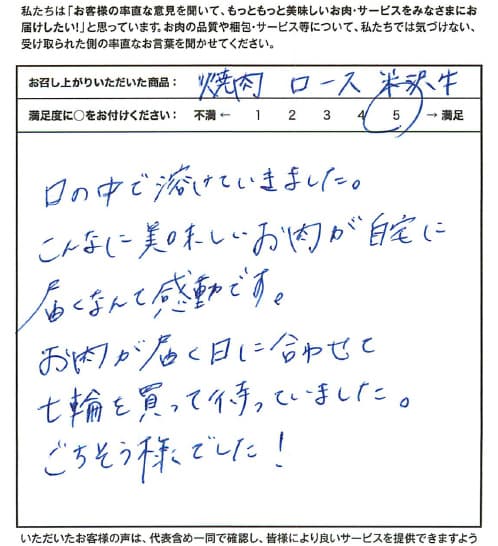 私たちは「お客様の率直な意見を聞いて、もっともっと美味しいお肉・サービスをみなさまにお
届けしたい!」と思っています。お肉の品質や梱包・サービス等について、私たちでは気づけない、
受け取られた側の率直なお言葉を聞かせてください。
お召し上がりいただいた商品: 焼肉 ロース 米沢牛
満足度に○をお付けください: 不満 ← 1 2 3 4 5 → 満足
口の中で溶けていきました。
こんなに美味しいお肉が自宅に
届くなんて感動です。
お肉が届く日に合わせて
七輪を買って待っていました。
ごちそう様でした!
いただいたお客様の声は、代表含め一同で確認し、皆様により良いサービスを提供できますよう